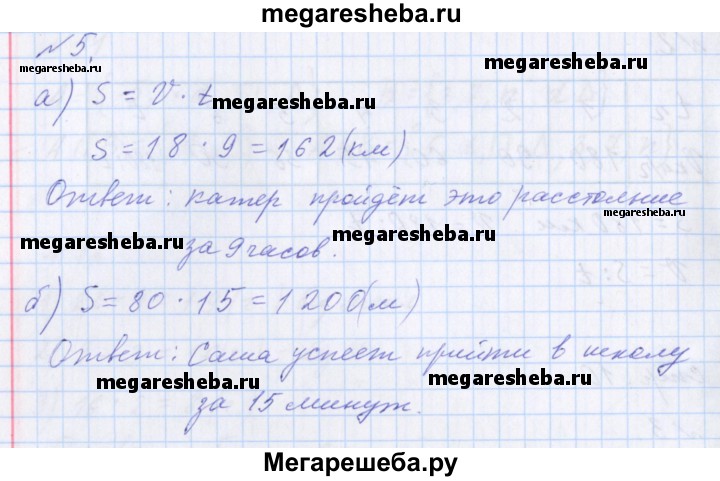 megaresheba.ru
№5.
megaresheba.ru
megaresheba.ru
а) S = V · t
megaresheba.ru
S = 18 · 9 = 162 (км)
Ответ: катер пройдёт это расстояние
megaresheba.ru
за 9 часов.
megaresheba.ru
megaresheba.ru
б) S = 80 · 15 = 1200 (м)
Ответ: Саша успеет прийти в школу
megaresheba.ru
за 15 минут.
megaresheba.ru
Мегарешеба.ру